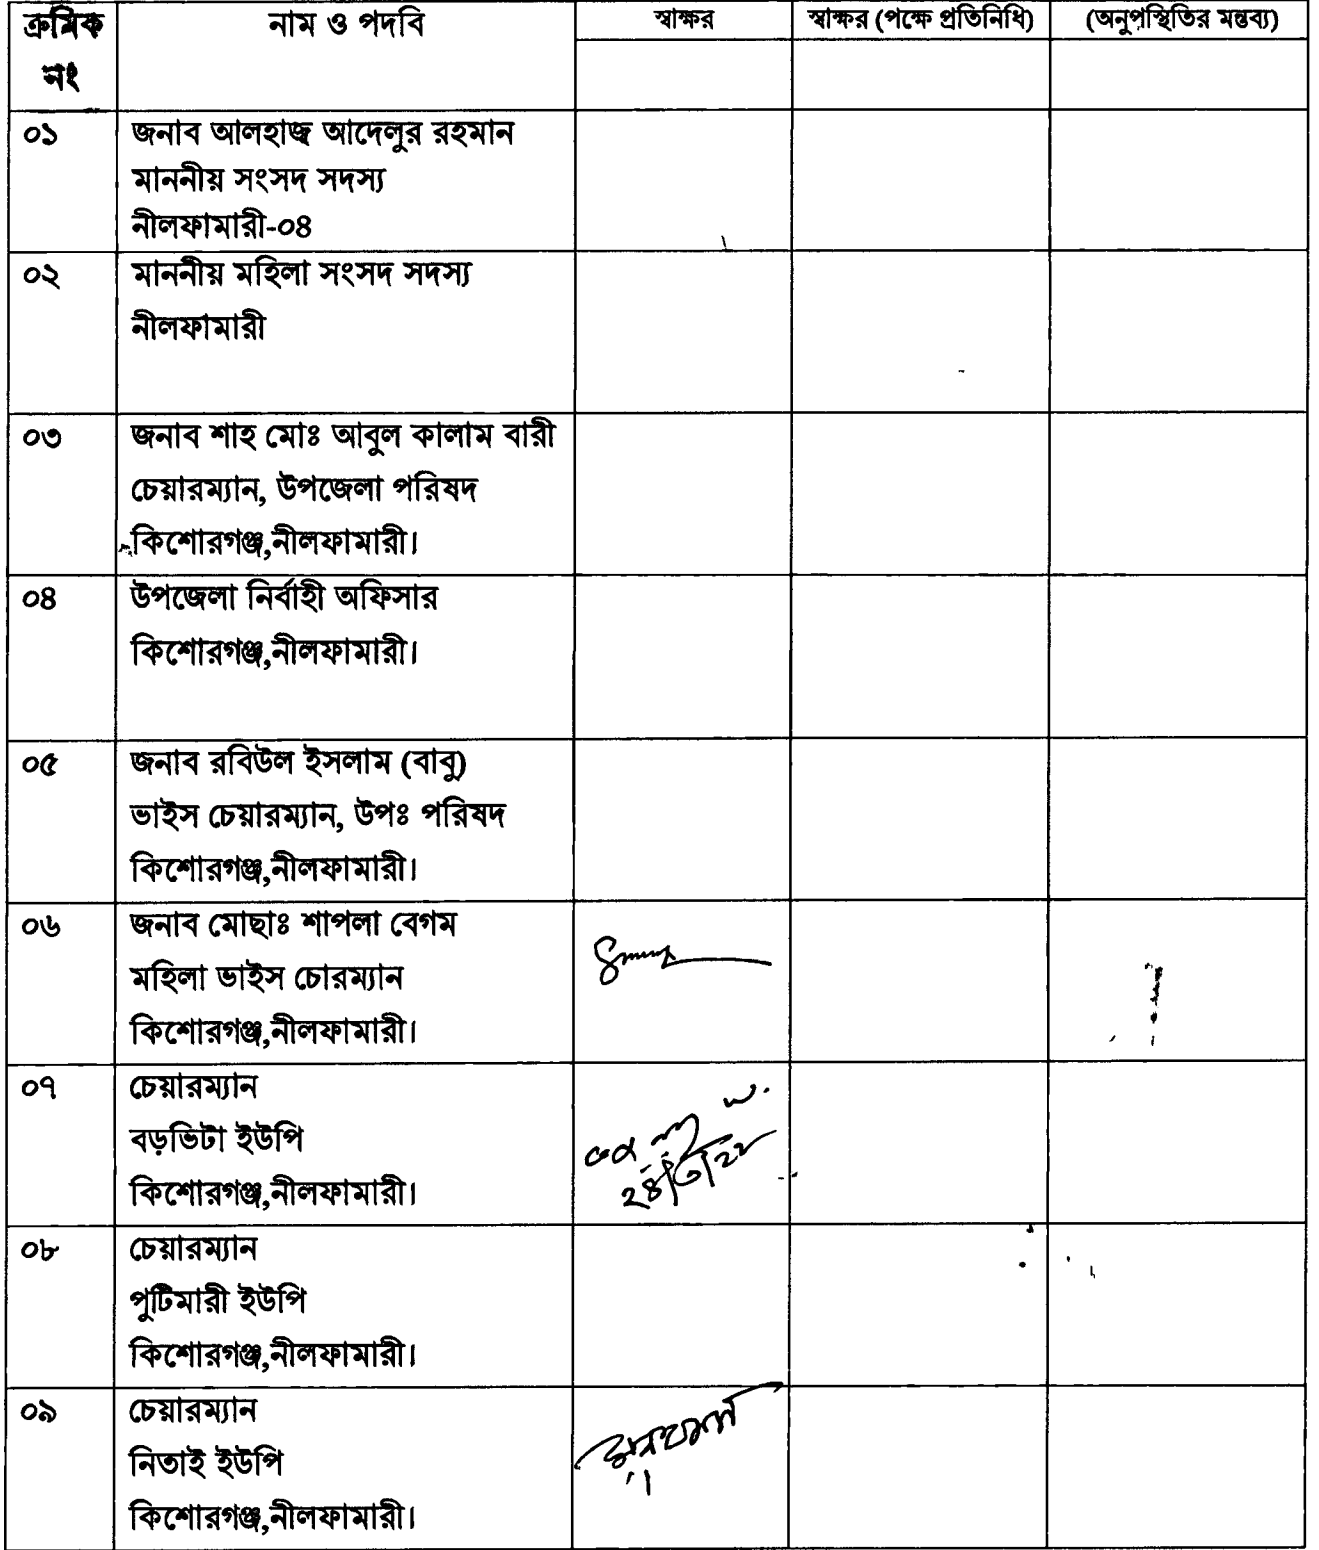 ক্রমিক নাম ও পদবি স্বাক্ষর স্বাক্ষর (পক্ষে প্রতিনিধি) (অনুপস্থিতির মন্তব্য)
নং
০১ জনাব আলহাজ্ব আদেলুর রহমান
মাননীয় সংসদ সদস্য
নীলফামারী-০৪
০২ মাননীয় মহিলা সংসদ সদস্য
নীলফামারী
০৩ জনাব শাহ মোঃ আবুল কালাম বারী
চেয়ারম্যান, উপজেলা পরিষদ
কিশোরগঞ্জ,নীলফামারী।
০৪ উপজেলা নির্বাহী অফিসার
কিশোরগঞ্জ,নীলফামারী।
০৫ জনাব রবিউল ইসলাম (বাবু)
ভাইস চেয়ারম্যান, উপঃ পরিষদ
কিশোরগঞ্জ,নীলফামারী।
০৬ জনাব মোছাঃ শাপলা বেগম
মহিলা ভাইস চোরম্যান
কিশোরগঞ্জ,নীলফামারী।
০৭ চেয়ারম্যান
বড়ভিটা ইউপি
কিশোরগঞ্জ,নীলফামারী। ২৪/৩/২২
০৮ চেয়ারম্যান
পুটিমারী ইউপি
কিশোরগঞ্জ,নীলফামারী।
০৯ চেয়ারম্যান
নিতাই ইউপি
কিশোরগঞ্জ,নীলফামারী।